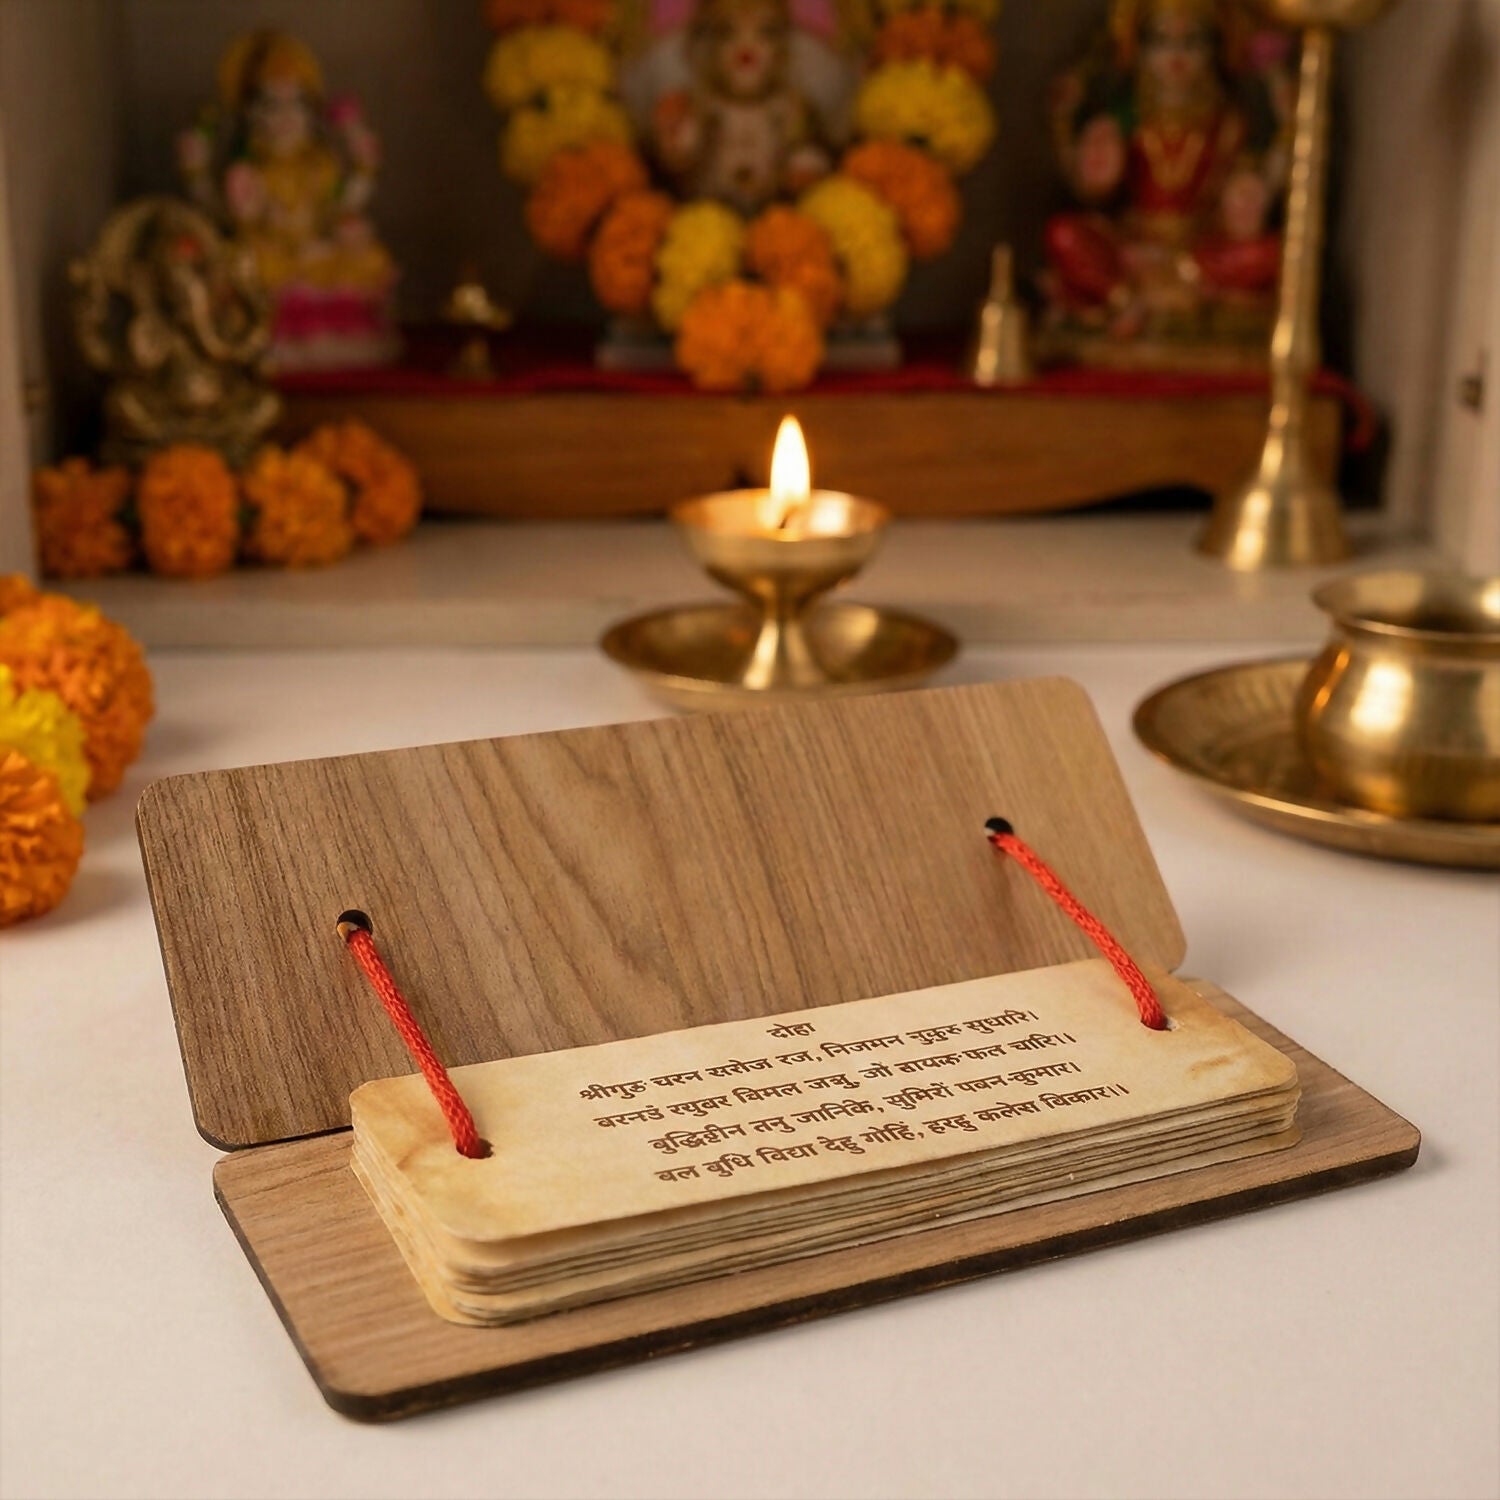 दोहा
श्रीगुरु चरन सरोज रज, निजमन मुकुरु सुधारि।
बरनउं रघुवर बिमल जसु, जो दायक फल चारि।।
बुद्धिहीन तनु जानिके, सुमिरों पवन-कुमार।
बल बुधि विद्या देहु मोहिं, हरहु कलेस विकार।।